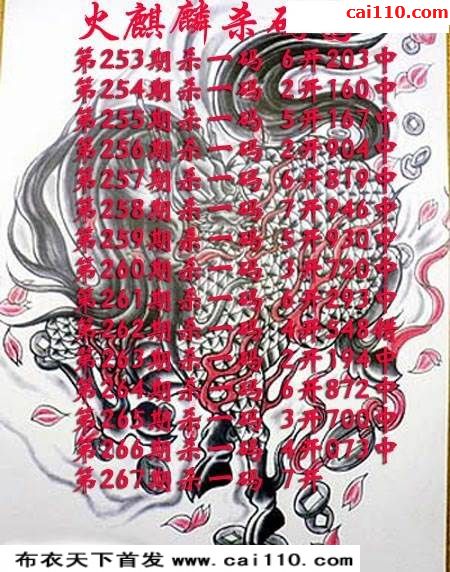 cai110.com
火麒麟杀码
第253期杀一码 6开203中
第254期杀一码 2开160中
第255期杀一码 5开167中
第256期杀一码 2开904中
第257期杀一码 6开819中
第258期杀一码 7开946中
第259期杀一码 5开930中
第260期杀一码 3开720中
第261期杀一码 6开293中
第262期杀一码 4开548
第263期杀一码 2开194中
第264期杀一码 6开872中
第265期杀一码 3开700中
第266期杀一码 4开073中
第267期杀一码 7开
布衣天下首发 www.cai110.com